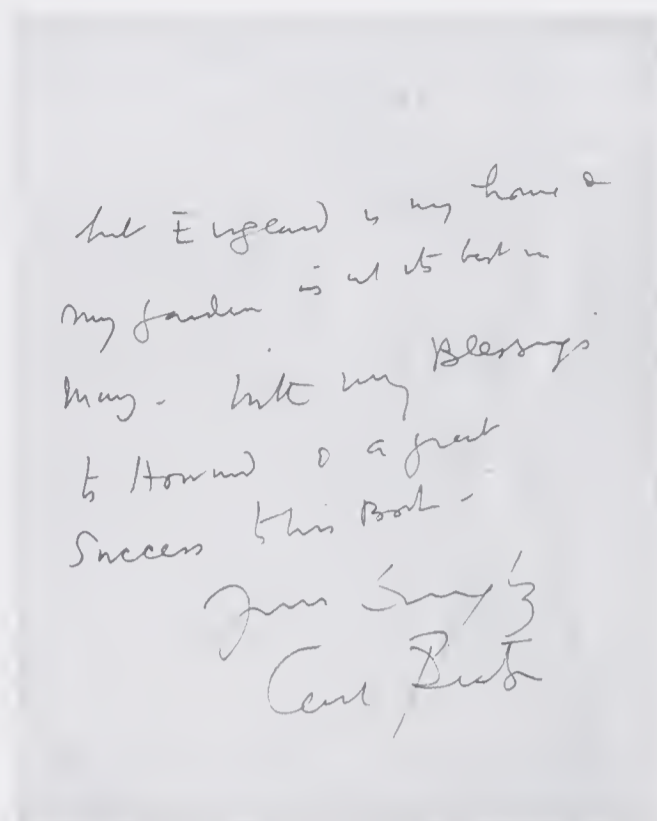 but England is my home &
my garden is at its best in
May - with my Blessings
to Howard & a great
Success this Book -
Yours Sincerely
Cecil Beaton